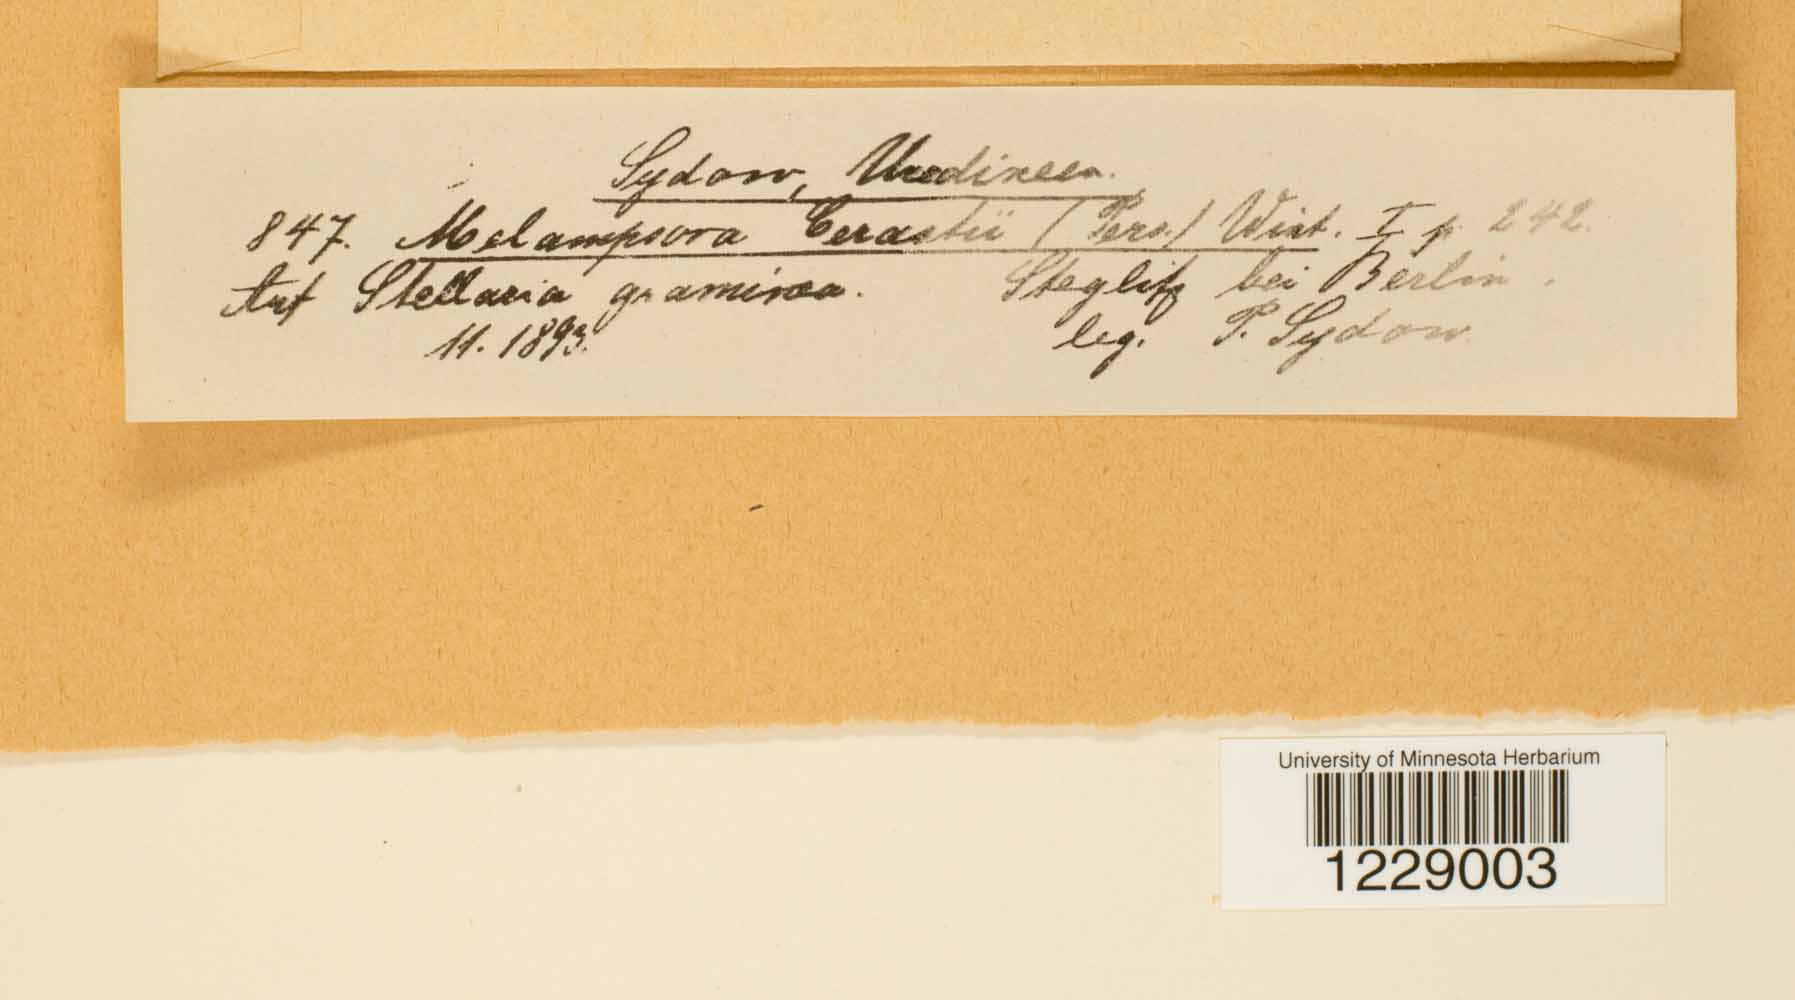 Sydow, Uredineen.
847. Melampsora Cerastii (Pers.) Wint. I p. 242.
Auf Stellaria graminea. Steglitz bei Berlin.
11. 1893. leg. P. Sydow.
University of Minnesota Herbarium
1229003